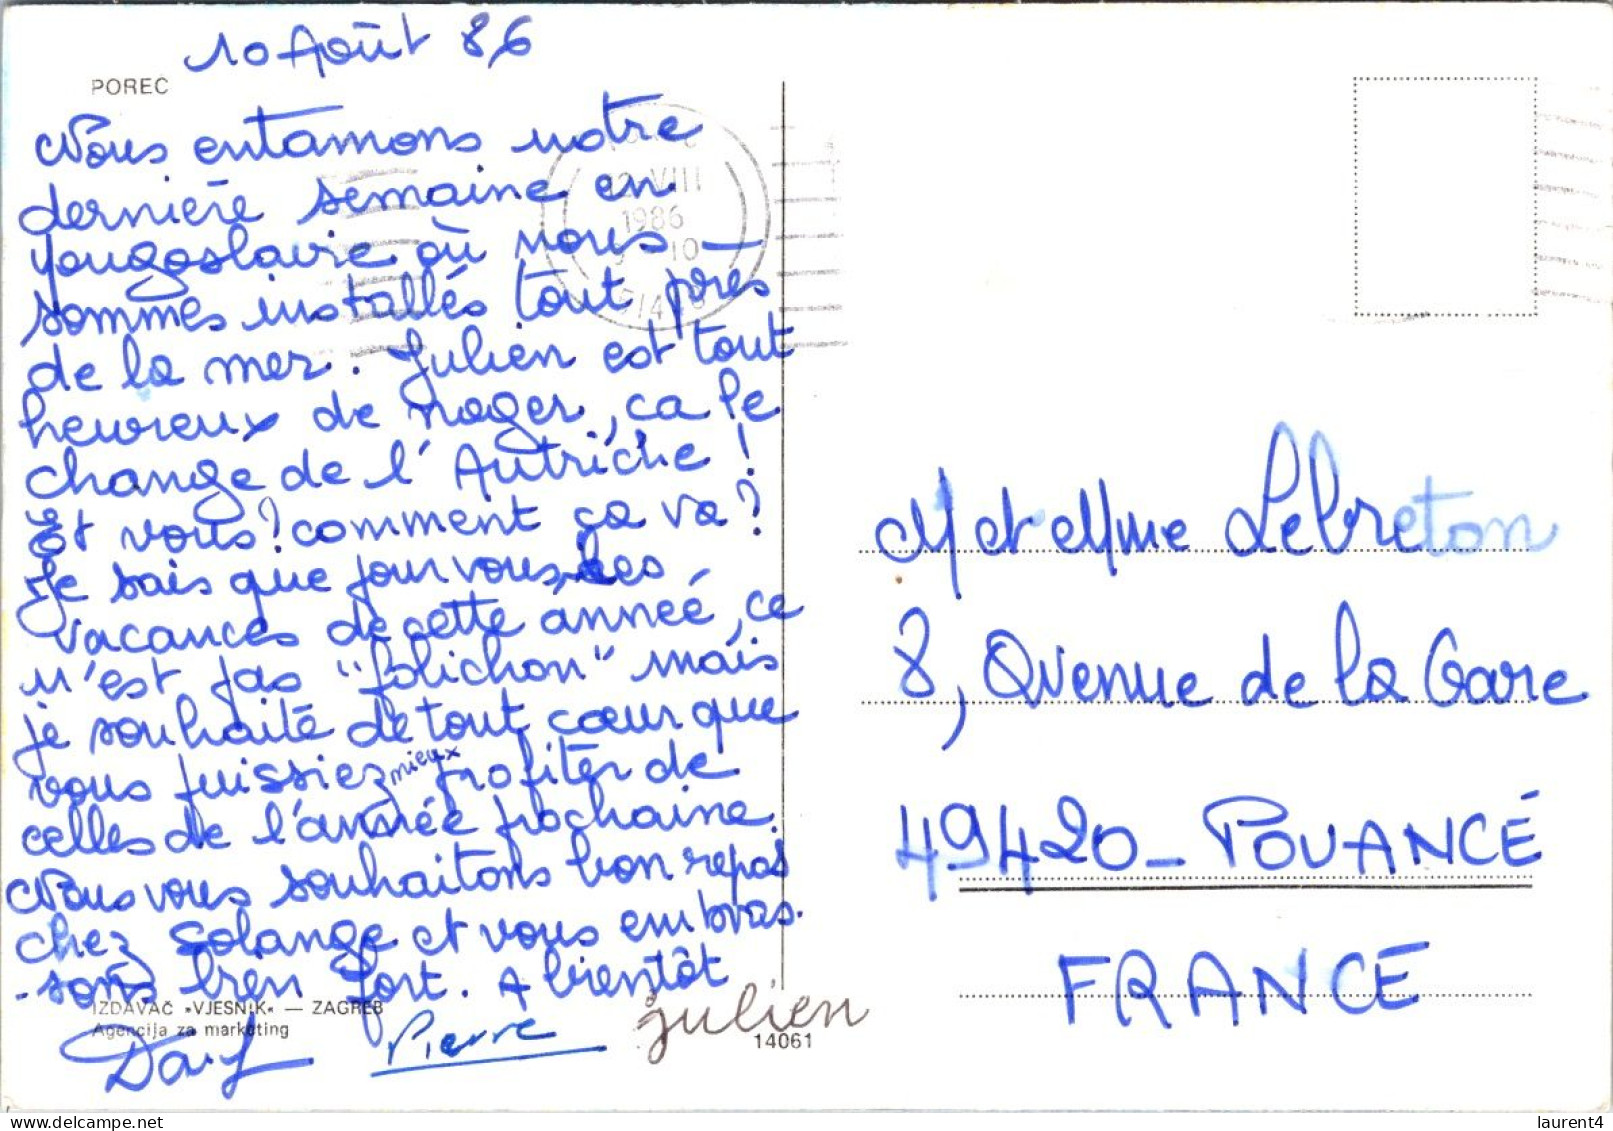 10 Août 86
POREC
Nous entamons notre
dernière semaine en
Yougoslavie où nous
sommes installés tout près
de la mer. Julien est tout
heureux de nager, ca le
change de l'Autriche !
Et vous ? comment ça va ?
Je sais que pour vous, les
vacances de cette année, ce
n'est pas "folichon" mais
je souhaite de tout cœur que
vous puissiez mieux profiter de
celles de l'année prochaine.
Nous vous souhaitons bon repos
chez Solange et vous embras-
-sons bien fort. A bientôt
IZDAVAČ »VJESNIK« — ZAGREB
Agencija za marketing
Pierre
julien
14061
12 VIII
1986
10
M et Mme Lebreton
8, Avenue de la Gare
49420 - POUANCÉ
FRANCE
laurent4